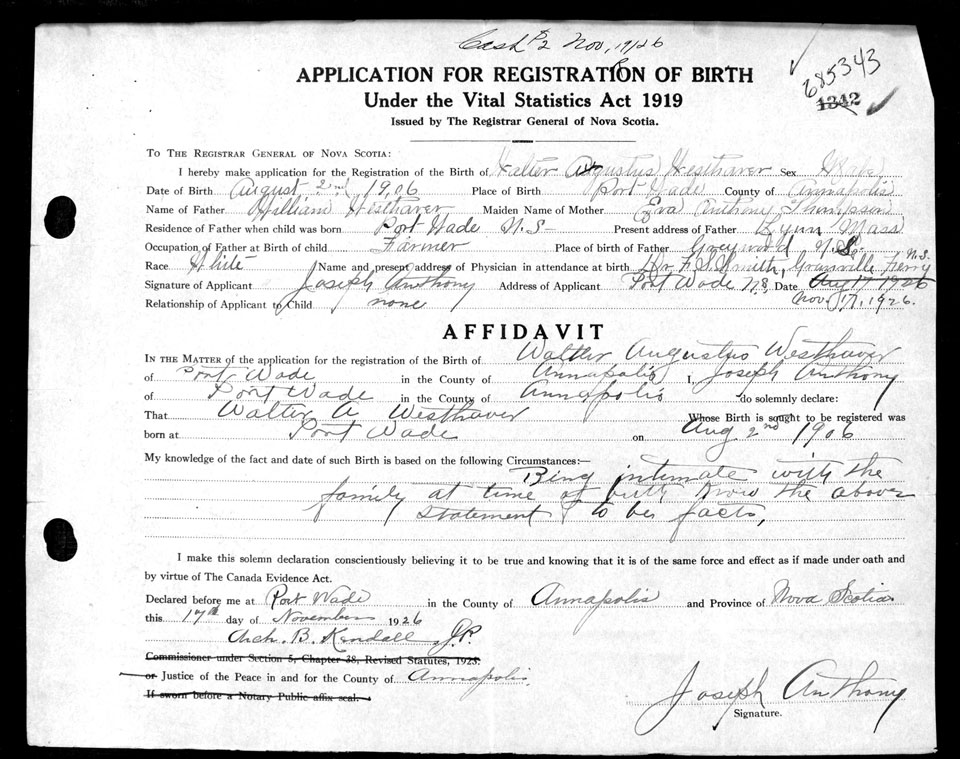 Cash $2 Nov, 19/26
APPLICATION FOR REGISTRATION OF BIRTH
Under the Vital Statistics Act 1919
Issued by The Registrar General of Nova Scotia.
685343
1342
TO THE REGISTRAR GENERAL OF NOVA SCOTIA:
I hereby make application for the Registration of the Birth of Walter Augustus Westhaver Sex Male
Date of Birth August 2nd 1906 Place of Birth Port Wade County of Annapolis
Name of Father William Westhaver Maiden Name of Mother Eva Anthony Thompson
Residence of Father when child was born Port Wade N.S- Present address of Father Lynn Mass
Occupation of Father at Birth of child Farmer Place of birth of Father Greywood N.S.
Race White Name and present address of Physician in attendance at birth Dr F.S. Smith, Granville Ferry N.S.
Signature of Applicant Joseph Anthony Address of Applicant Port Wade N.S, Date Aug 17 1926
Relationship of Applicant to Child none Nov 17, 1926.
AFFIDAVIT
IN THE MATTER of the application for the registration of the Birth of Walter Augustus Westhaver
of Port Wade in the County of Annapolis I, Joseph Anthony
of Port Wade in the County of Annapolis do solemnly declare:
That Walter A Westhaver Whose Birth is sought to be registered was
born at Port Wade on Aug 2nd 1906
My knowledge of the fact and date of such Birth is based on the following Circumstances:—
Bing intimate with the
family at time of birth know the above
statement to be facts,
I make this solemn declaration conscientiously believing it to be true and knowing that it is of the same force and effect as if made under oath and
by virtue of The Canada Evidence Act.
Declared before me at Port Wade in the County of Annapolis and Province of Nova Scotia
this 17th day of November 1926
Arch. B. Kendall J.P.
Commissioner under Section 5, Chapter 38, Revised Statutes, 1923.
or Justice of the Peace in and for the County of Annapolis
If sworn before a Notary Public affix seal.
Joseph Anthony
Signature.